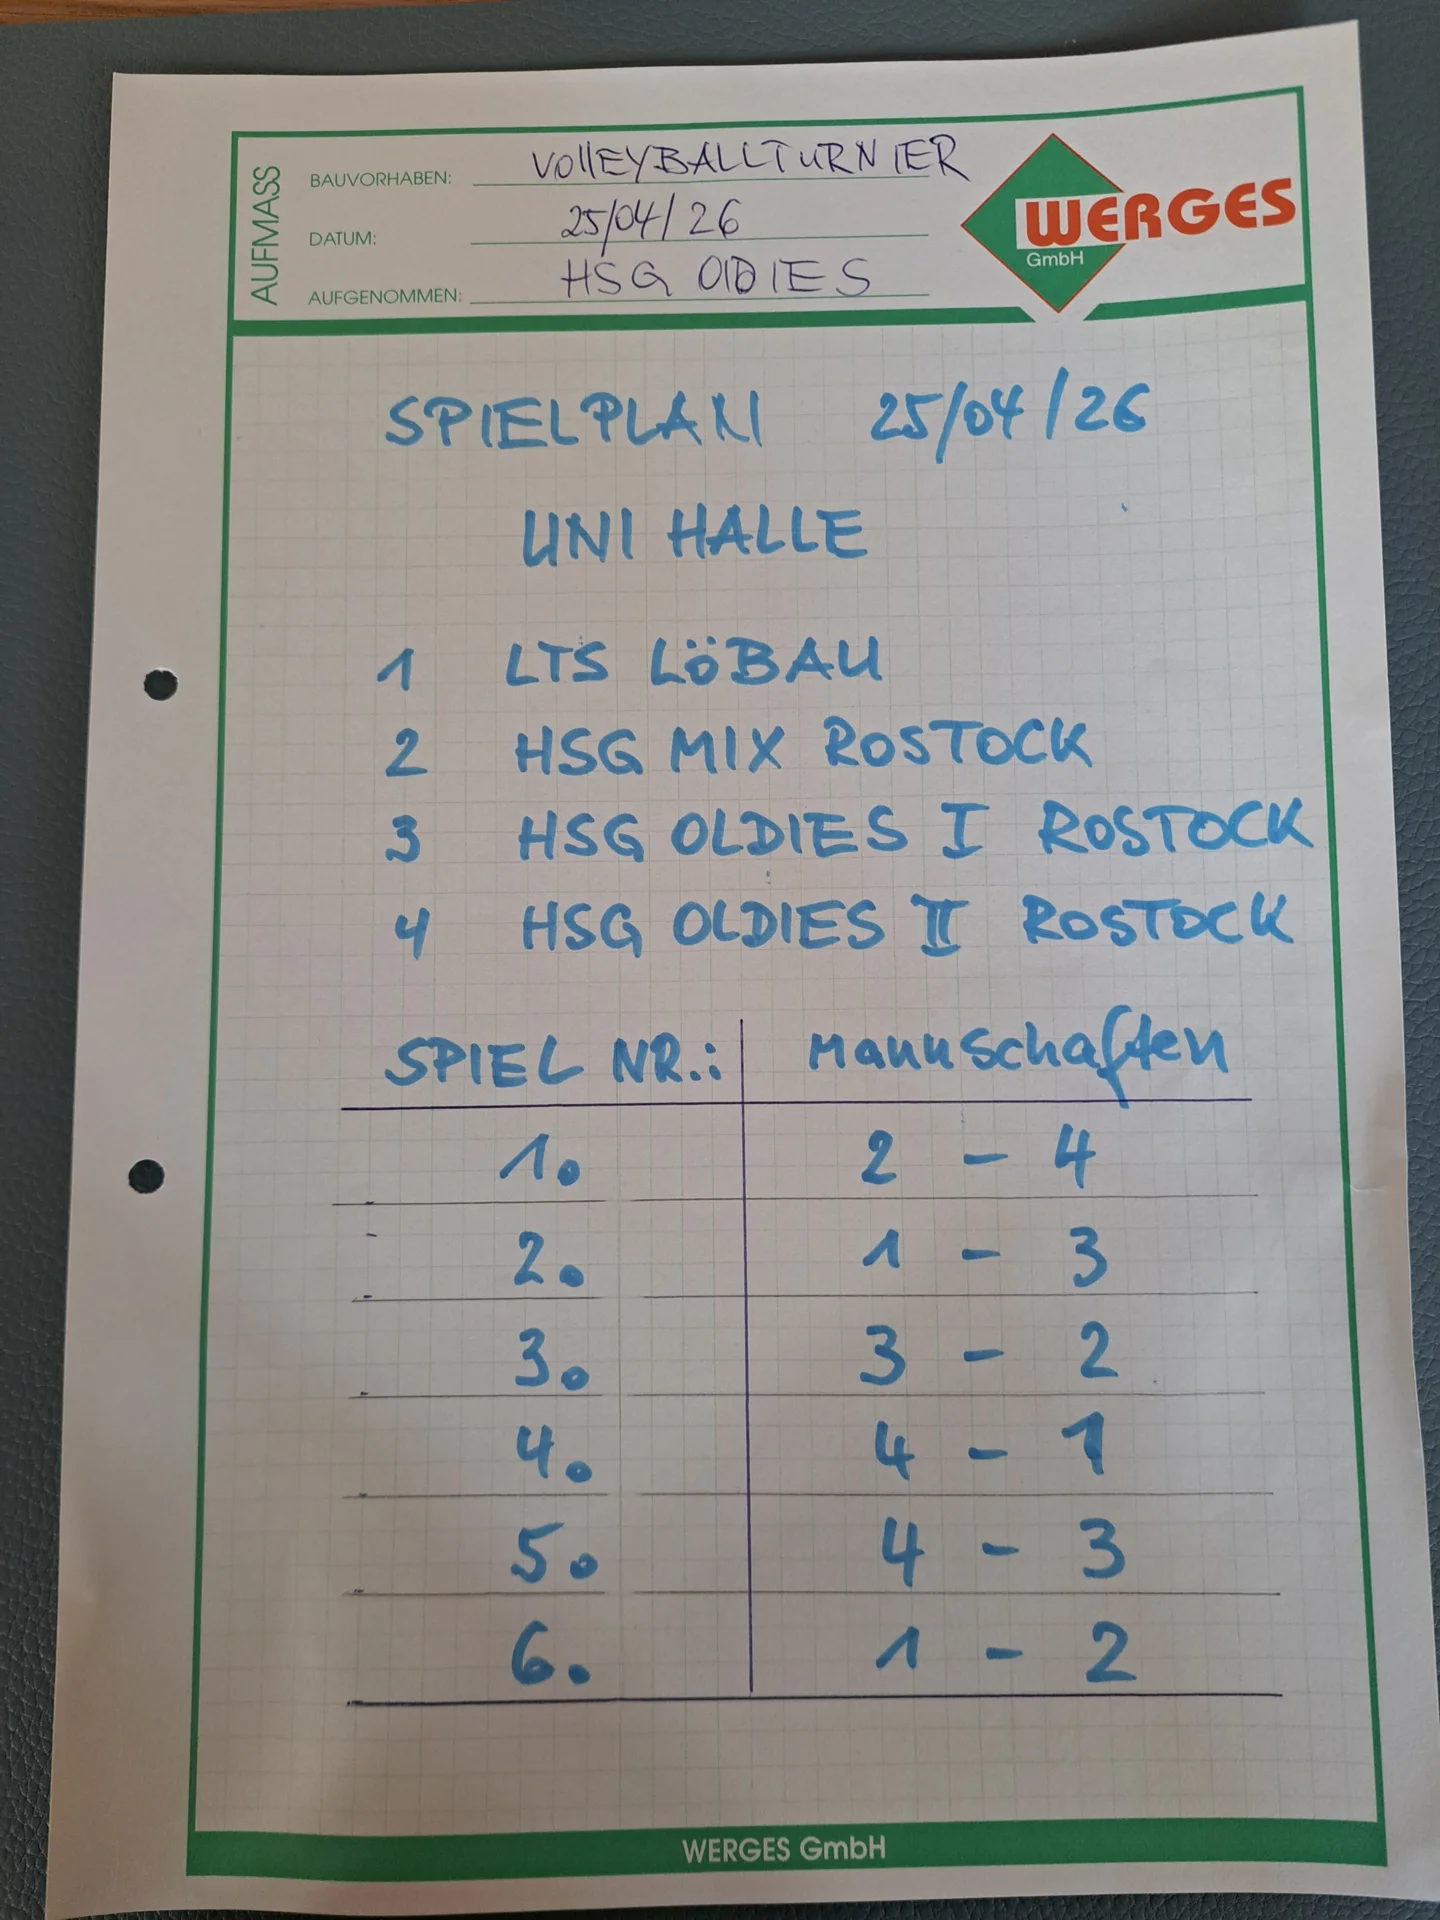 AUFMASS
BAUVORHABEN: VOllEYBALLTURNIER
DATUM: 25/04/26
AUFGENOMMEN: HSG OlDIES
WERGES
GmbH
SPIELPLAN 25/04/26
UNI HALLE
1 LTS LÖBAU
2 HSG MIX ROSTOCK
3 HSG OLDIES I ROSTOCK
4 HSG OLDIES II ROSTOCK
SPIEL NR.: Mannschaften
1. 2 - 4
2. 1 - 3
3. 3 - 2
4. 4 - 1
5. 4 - 3
6. 1 - 2
WERGES GmbH